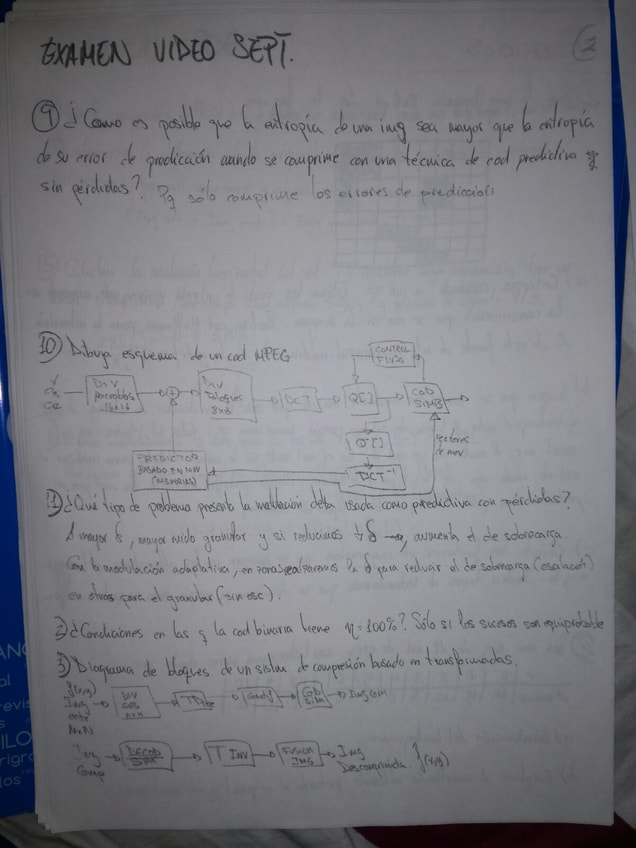 EXAMEN VIDEO SEPT.
2
9) ¿Como es posible que la entropía de una img sea mayor que la entropía
de su error de predicción cuando se comprime con una técnica de cod predictiva y
sin pérdidas? Pq sólo comprime los errores de predicción
10) Dibuja esquema de un cod MPEG
CONTROL
FLUJO
Y
CB
CR
DIV
Macrobloq
16x16
+
DIV
Bloques
8x8
DCT
Q[]
COD
SIMB
Q[]
vectores
de mov
PREDICTOR
BASADO EN MOV
(MEMORIAS)
DCT⁻¹
1) ¿Qué tipo de problema presenta la modulación delta usada como predictiva con pérdidas?
A mayor δ, mayor ruido granular y si reducimos δ, aumenta el de sobrecarga
Con la modulación adaptativa, en zonas δ para reducir el de sobrecarga (escalación)
en otras para el granular (sin esc).
2) ¿Condiciones en las q la cod binaria tiene η=100%? Sólo si los sucesos son equiprobable
3) Diagrama de bloques de un sistem de compresión basado en transformadas.
f(x,y)
Img
NxN
DIV
nxn
COD
SIM
Img COM
Img
Comp
DECOD
SIM
T INV
FUSION
IMG
Img
Descomprimida f(x,y)